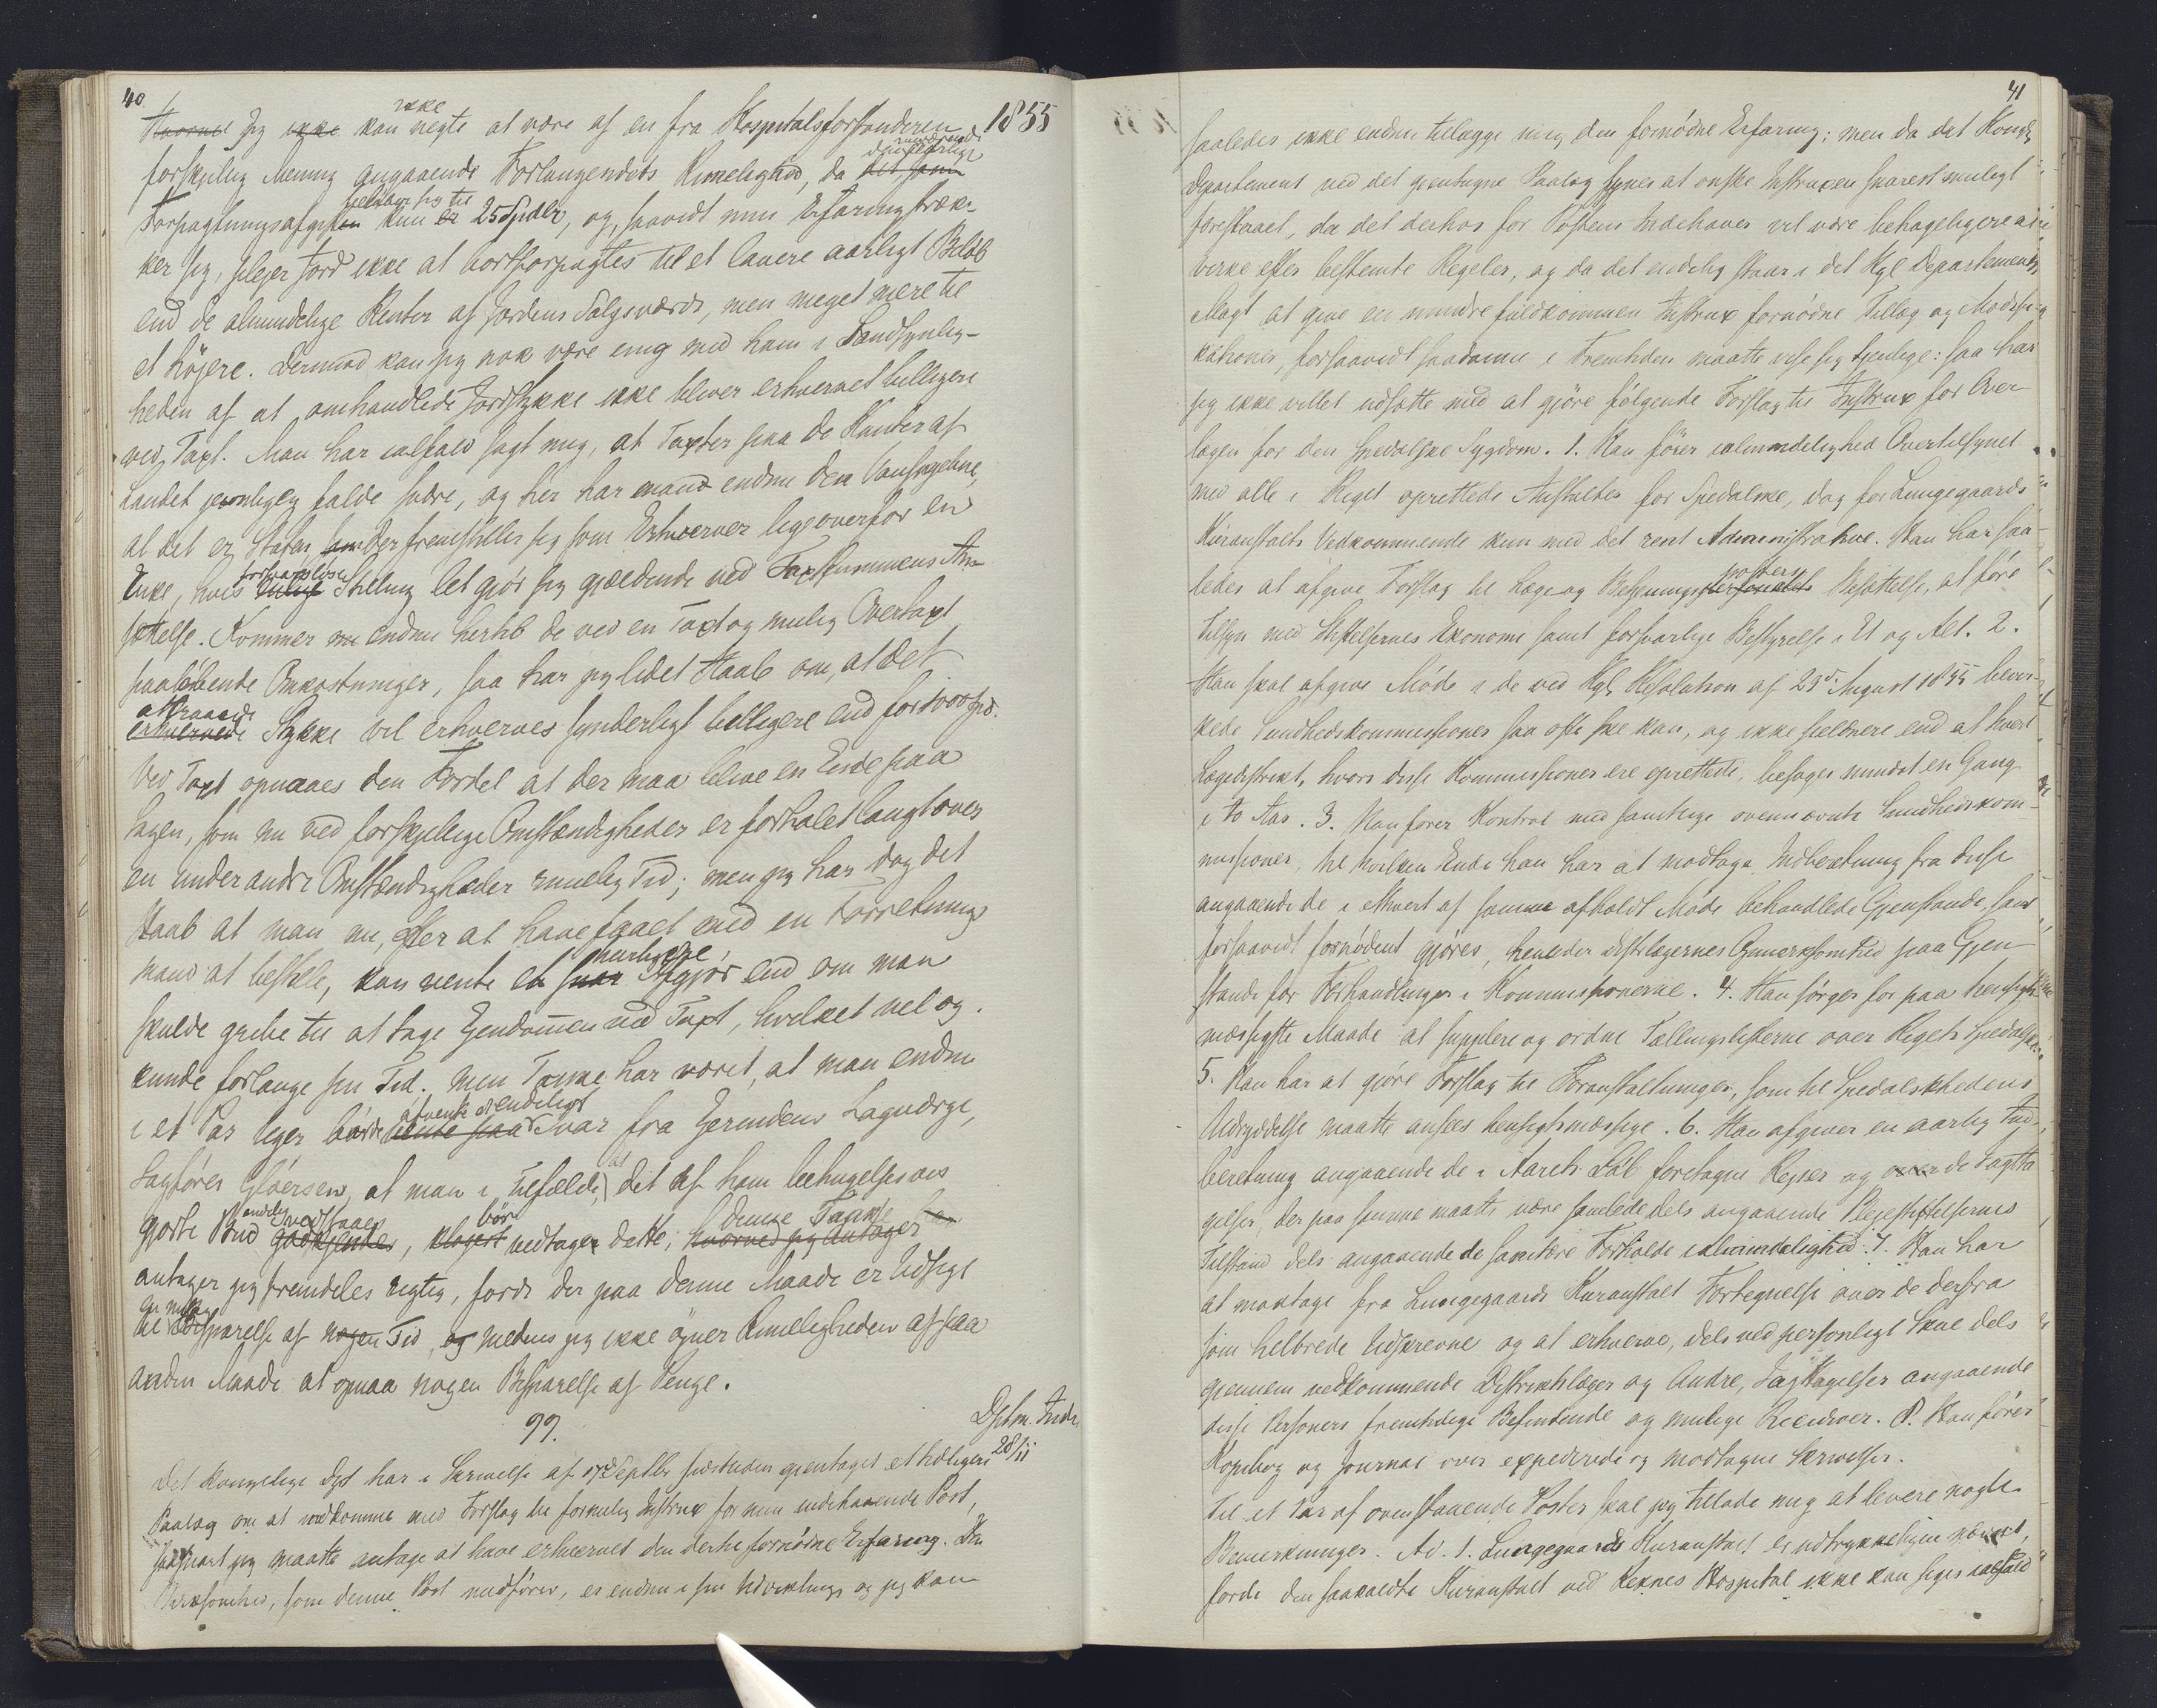 40
1855
Hvorvel Jeg ikke kan ikke negte at være af en fra Hospitalsforstanderen
forskjellig Mening angaaende Forlangendets Rimelighed, da den aarlige det som
Forpagtningsafgiften kun er beløber sig til 25 Spdlr, og, saavidt min Erfaring træk-
ker sig, plejer Jord ikke at bortforpagtes til et lavere aarligt Beløb
end de almindelige Renter af Jordens Salgsværdi, men meget mere til
et höjere. Dermod kan jeg nok være enig med ham i Sandsynlig-
heden af at omhandlede Jordstykke ikke bliver erhvervet billigere
ved Taxt. Man har ialfald sagt mig, at Taxter paa de Kanter af
Landet jevnligen falde svære, og her har mand endnu den Vanskelighed,
at det er Staten, som der fremstiller sig som Erhverver ligeoverfor en
Enke, hvis forsvarslöse Stilling let gjör sig gjældende ved Taxtsummens An-
sættelse. Kommer nu endnu hertil de ved en Taxt og mulig Overtaxt
paaløbende Omkostninger, saa har jeg lidet Haab om, at det
attraaede erhvervede Stykke vil erhverves synderligt billigere end for 1000 Spd.
Ved Taxt opnaaes den Fordel at der maa blive en Ende paa
Sagen, som nu ved forskjellige Omstændigheder er forhalet langt over
en under andre Omstændigheder rimelig Tid; men jeg har dog det
Haab at man nu, efter at have faaet med en Forretnings
mand at bestille, kan vente en snar hurtigere Afgjør end om man
skulde gribe til at tage Ejendommen ved Taxt, hvilket vel og.
kunde forlange sin Tid. Min Tanke har været, at man endnu
i et Par Uger burde vente paa afvente et endeligt Svar fra Ejerindens Lagværge,
Sagförer Gløersen, at man i Tilfælde, at det af ham betingelsesvis
gjorte Bud godkjendes endelig vedtaaes, klogest bör vedtage dette, hvorved jeg antager denne Tanke har
antager jeg fremdeles rigtig, fordi der paa denne Maade er Udsigt
til en mulig Besparelse af nogen Tid, og medens jeg ikke øjner Rimeligheden af paa
anden Maade at opnaa nogen Besparelse af Penge.
99.
Dptm. Indr.
28/11
Det kongelige Dpt har i Skrivelse af 17d Septbr sidstleden gjentaget et tidligere
Paalæg om at indkomme med Forslag til formelig Instrux for min indehavende Post,
saasnart jeg maatte antage at have erhvervet den dertil fornødne Erfaring. Den
Virksomhed, som denne Post medfører, er endnu i sin Udviklings og jeg kan
41
saaledes ikke endnu tillægge mig den fornödne Erfaring; men da det Kongl.
Departement ved det gjentagne Paalæg synes at onske Instruxen snarest muligt
foreskrevet, da det derhos for Postens Indehaver vil være behageligere at
virke efter bestemte Regler, og da det endelig staar i det Kgl Departements
Magt at give en mindre fuldkommen Instrux fornödne Tillæg og Modifi-
kationer, forsaavidt saadanne i Fremtiden maatte vise sig tjenlige: saa har
jeg ikke villet udsætte med at gjöre fölgende Forslag til Instrux for Over-
lægen for den spedalske Sygdom. 1. Han förer i almindelighed Overtilsynet
med alle i Riget oprettede Anstalter for Spedalske, dog for Lungegaards
Kuranstalts Vedkommende kun med det rent Administrative. Han har saa-
ledes at afgive Forslag til Læge og Betjeningspersonalets posters Besættelse, at före
Tilsyn med Stiftelsernes Økonomi samt forsvarlige Bestyrelse i Et og Alt. 2.
Han skal afgive Möde i de ved Kgl. Resolution af 29d August 1855 bevir-
kede Sundhedskommissioner saa ofte ske kan, og ikke sjældnere end at hvert
Lægedistrikt, hvori disse Kommissioner ere oprettede, besøges mindst en Gang
i to Aar. 3. Han fører Kontrol med samtlige ovennævnte Sundhedskom-
missioner, til hvilken Ende han har at modtage Indberetning fra disse
angaaende de i ethvert af samme afholdt Möde behandlede Gjenstande, samt
forsaavidt fornødent gjøres, henleder Distrlægernes Opmærksomhed paa Gjen-
stande for Forhandlinger i Kommissionerne. 4. Han sørger for paa hensigts-
mæssigste Maade at supplere og ordne Tællingslisterne over Rigets Spedalske.
5. Han har at gjöre Forslag til Foranstaltninger, som til Spedalskhedens
Udryddelse maatte ansees hensigtsmæssige. 6. Han afgiver en aarlig Ind-
beretning angaaende de i Aarets Løb foretagne Rejser og over de Iagtta-
gelser, der paa samme maatte være samlede dels angaaende Plejestiftelsernes
Tilstand dels angaaende de sanitære Forholde i almindelighed. 7. Han har
at modtage fra Lungegaards Kuranstalt Fortegnelse over de derfra
som helbrede Udskrevne og at erhverve, dels ved personligt Skue dels
gjennem vedkommende Distriktslæger og Andre, Iagttagelser angaaende
disse Personers fremtidige Befindende og mulige Recidiver. 8. Han förer
Kopibog og Journal over expederede og modtagne Skrivelser.
Til et Par af ovenstaaende Poster skal jeg tillade mig at levere nogle
Bemærkninger. Ad. 1. Lungegaards Kuranstalt er udtrykkeligen nævnt,
fordi den saakaldte Kuranstalt ved Reknes Hospital ikke kan siges ialfald